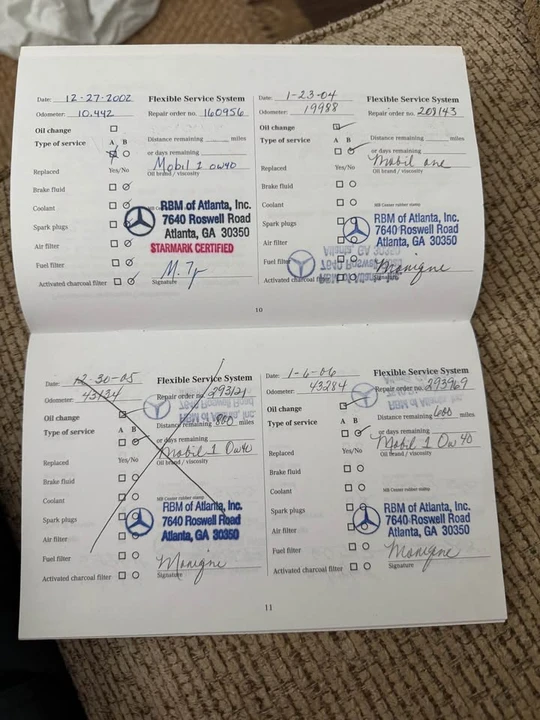 Date: 12-27-2002 Flexible Service System
Odometer: 10.442 Repair order no. 160956
Oil change
Distance remaining miles
Type of service A B
or days remaining
Mobil 1 0w40
Replaced Yes/No Oil brand / viscosity
Brake fluid
Coolant
RBM of Atlanta, Inc.
Spark plugs 7640 Roswell Road
Atlanta, GA 30350
Air filter STARMARK CERTIFIED
Fuel filter
Activated charcoal filter Signature
Date: 1-23-04 Flexible Service System
Odometer: 19988 Repair order no. 208143
Oil change
Distance remaining miles
Type of service A B
or days remaining
Mobil one
Replaced Yes/No Oil brand / viscosity
Brake fluid
Coolant MB Center rubber stamp
RBM of Atlanta, Inc.
Spark plugs 7640 Roswell Road
Atlanta, GA 30350
Air filter
Atlanta, GA 30350
Fuel filter 7640 Roswell Road
RBM of Atlanta, Inc.
Monique
Activated charcoal filter Signature
10
Date: 12-30-05 Flexible Service System
Odometer: 43134 Repair order no. 293121
7640 Roswell Road
Oil change RBM of Atlanta, Inc.
Distance remaining 800 miles
Type of service A B
or days remaining
Mobil 1 0w40
Replaced Yes/No Oil brand / viscosity
Brake fluid
Coolant MB Center rubber stamp
RBM of Atlanta, Inc.
Spark plugs 7640 Roswell Road
Atlanta, GA 30350
Air filter
Fuel filter Monique
Activated charcoal filter Signature
Date: 1-6-06 Flexible Service System
Odometer: 43284 Repair order no. 293969
Oil change
Distance remaining 600 miles
Type of service A B
or days remaining
Mobil 1 0w40
Replaced Yes/No Oil brand / viscosity
Brake fluid
Coolant MB Center rubber stamp
RBM of Atlanta, Inc.
Spark plugs 7640 Roswell Road
Atlanta, GA 30350
Air filter
Fuel filter Monique
Activated charcoal filter Signature
11